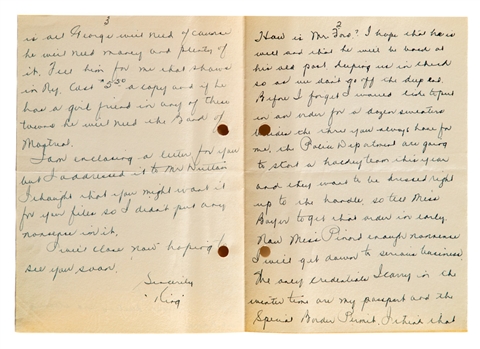 3
is all George will need of course
he will need money and plenty of
it. Tell him for me that shows
in N.y. Cost $5.50 a copy and if he
has a girl friend in any of these
towns he will need the Bank of
Montreal.
I am enclosing a letter for you
but I addressed it to Mr
I thought that you might want it
for your files so I didn't put any
nonsense in it.
I will close now hoping to
see you soon.
Sincerely
"King"
2
How is Mr. ? I hope that he is
well and that he will be back at
his old post keeping us in check
so as we don't go off the deep end.
Before I forget I would like to put
in an order for a dozen sweaters
besides the ones you always have for
me, the Police Department are going
to start a hockey team this year
and they want to be dressed right
up to the handle, so tell Miss
to get that order in early.
Now Miss enough nonsense
I will get down to serious business.
The only credentials I carry in the
winter time are my passport and the
Special Border Permit. I think that